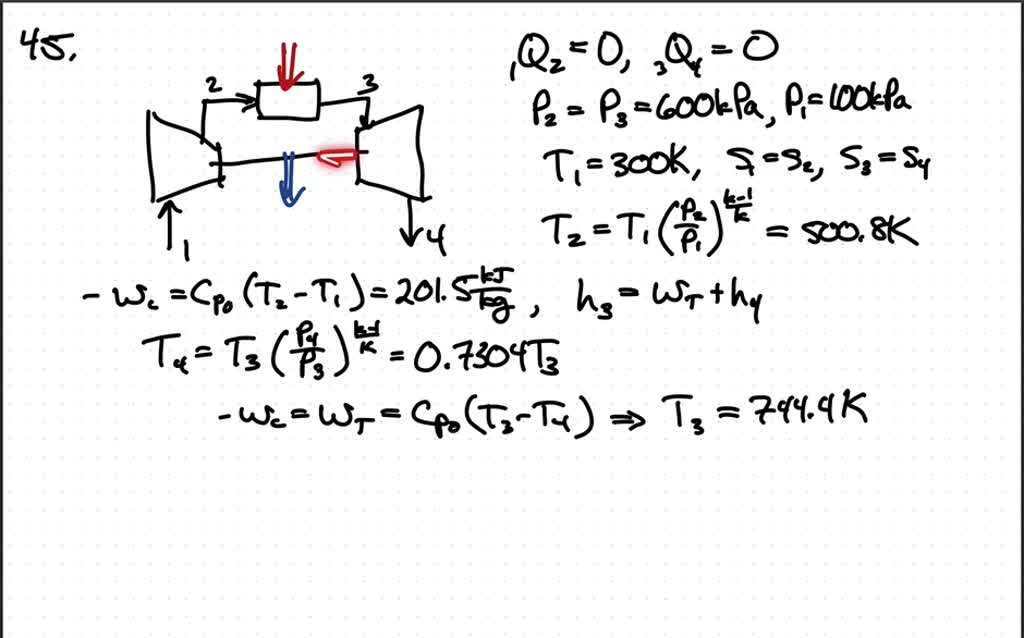 45.
₁Q₂ = 0, ₃Q₄ = 0
2 3
P₂ = P₃ = 600kPa, P₁ = 100kPa
T₁ = 300K, S₁ = S₂, S₃ = S₄
1 4
T₂ = T₁ (P₂/P₁)^(k-1/k) = 500.8K
- w_c = C_p₀ (T₂ - T₁) = 201.5 kJ/kg, h₃ = w_T + h₄
T₄ = T₃ (P₄/P₃)^(k-1/k) = 0.7304T₃
- w_c = w_T = C_p₀ (T₃ - T₄) ⇒ T₃ = 744.4K